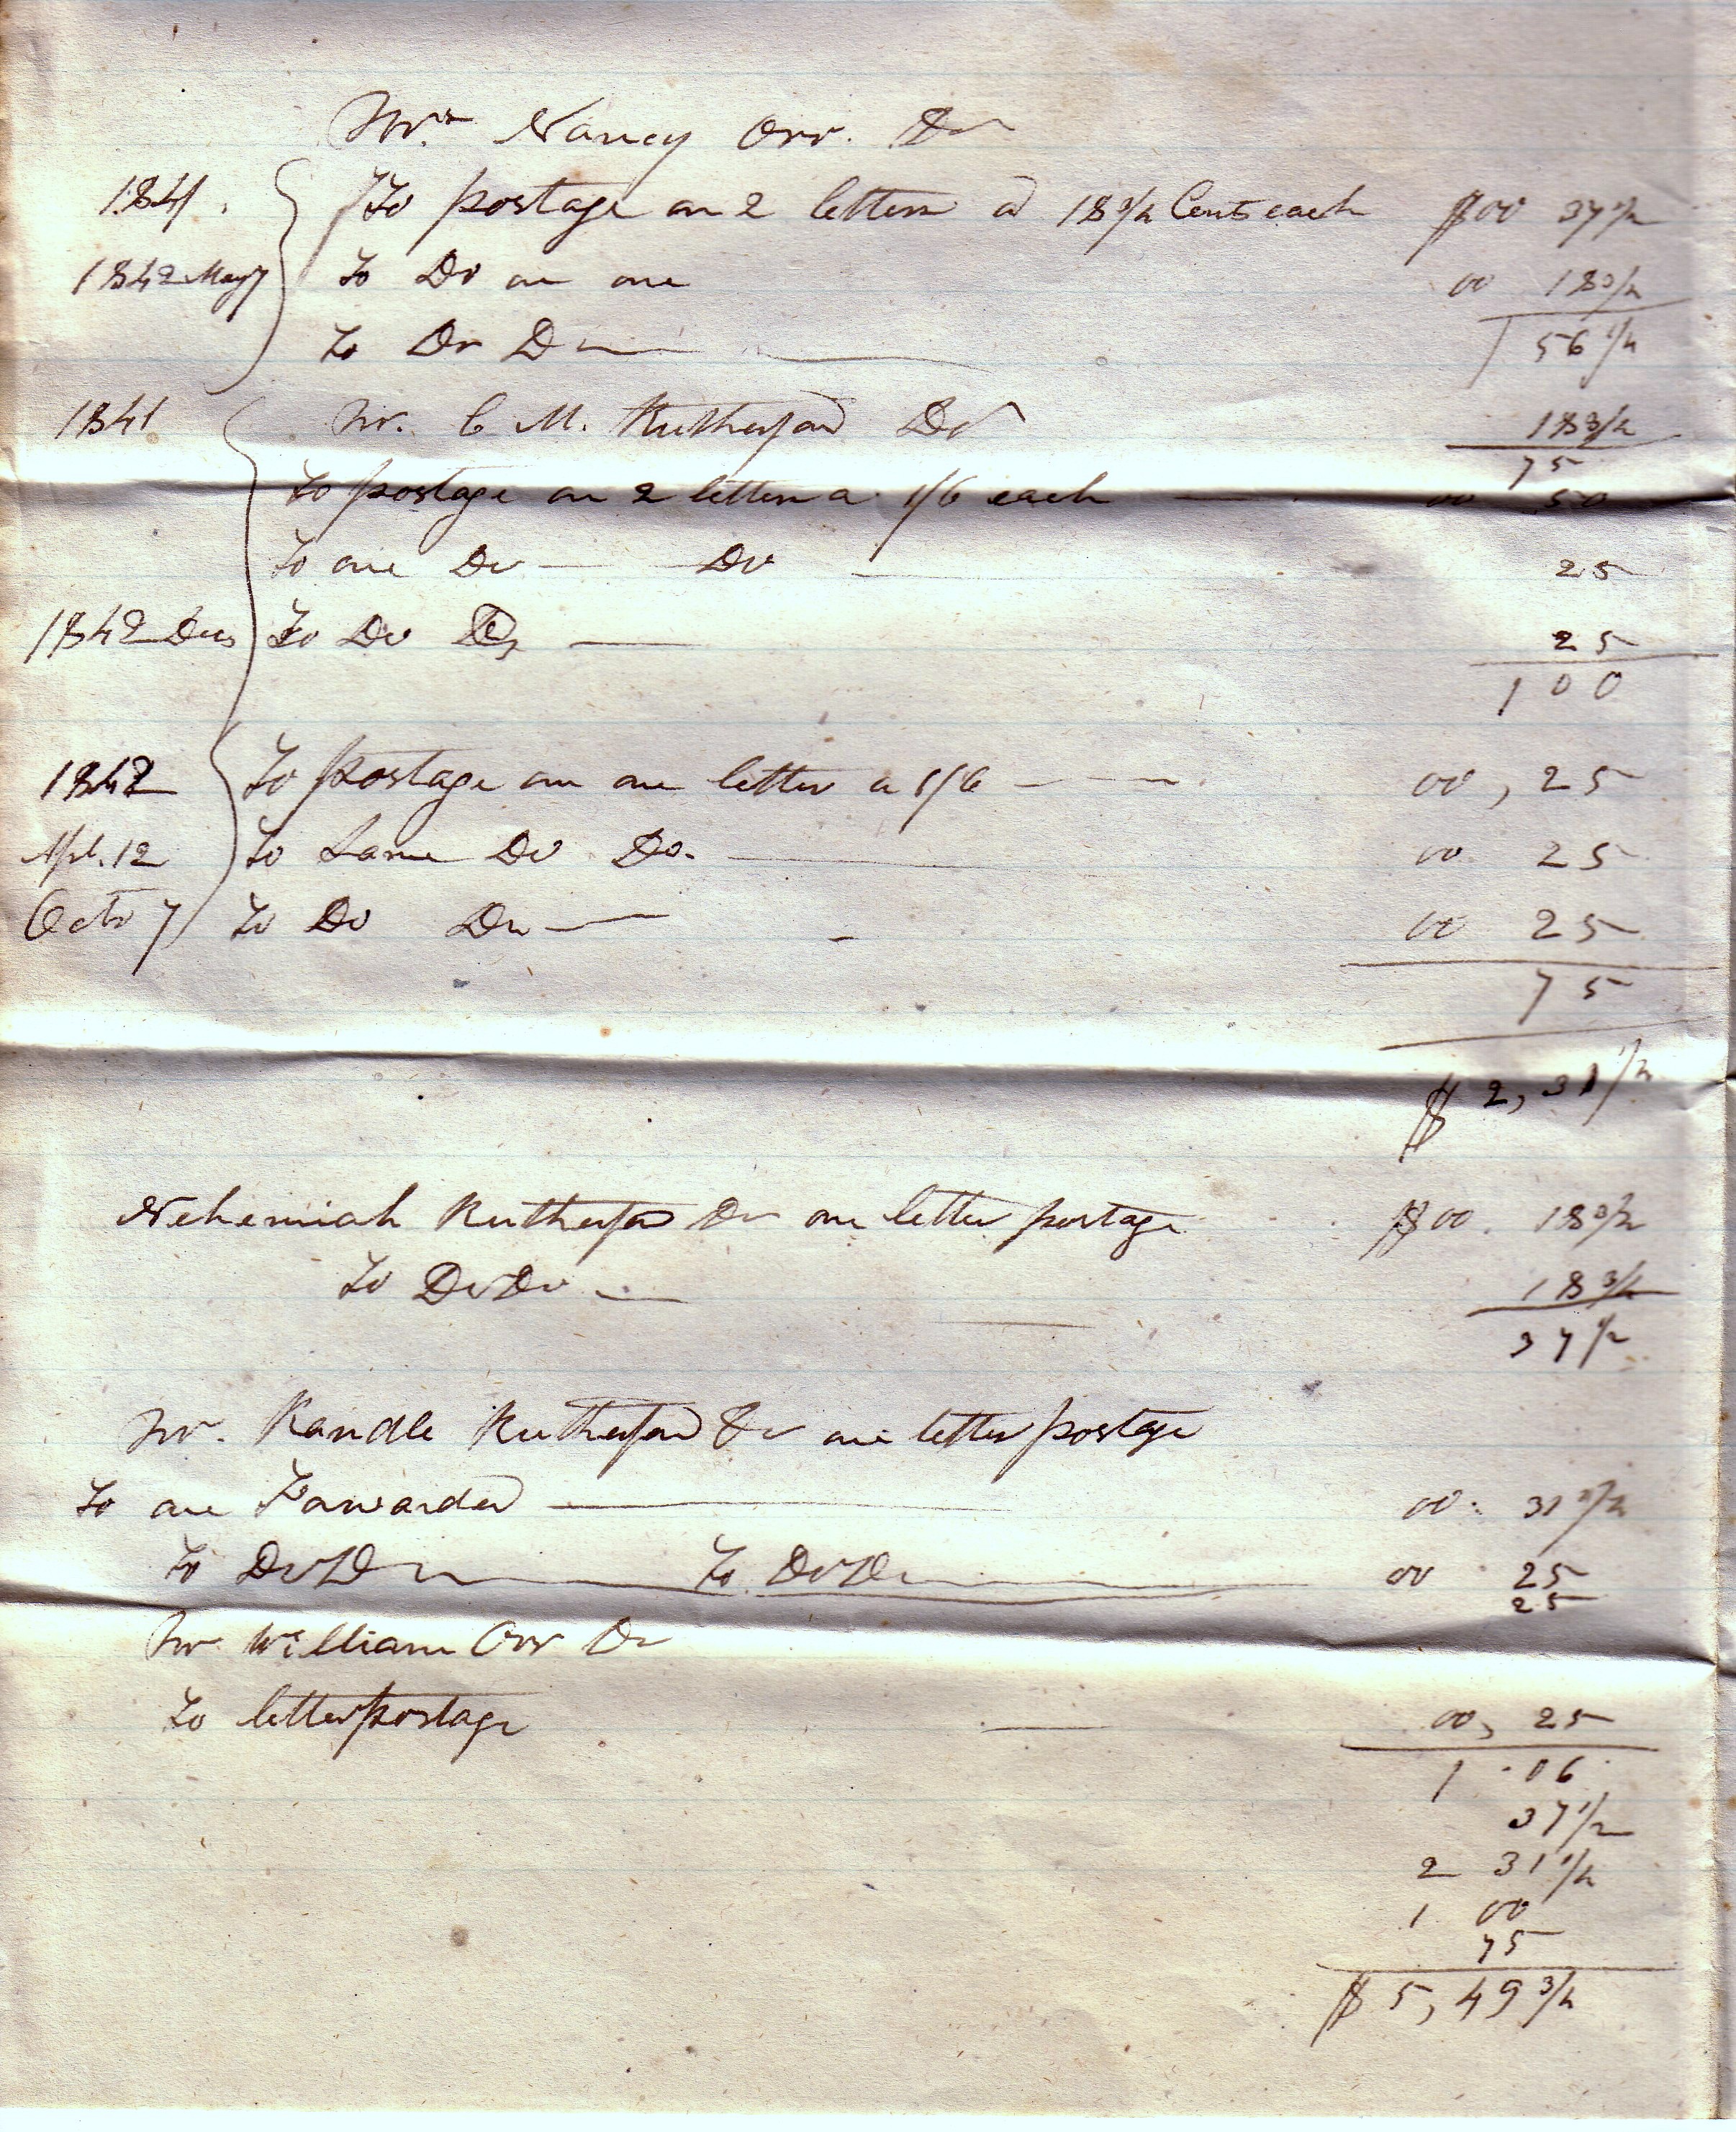 Mrs. Nancy Orr. Dr
1841. To postage on 2 letters a 18 3/4 Cents each $00 37 1/2
1842 May 7 To Do on one 00 18 3/4
56 1/4
To Do Do
1841 Mr. C M. Rutherford Dr 18 3/4
75
To postage on 2 letters a 1/6 each 00 50
To one Do Do 25
1842 To Do Do 25
1 00
1842 To postage on one letter a 1/6 00, 25
Apl. 12 To Same Do Do. 00 25
Octo 7 To Do Do 00 25
75
$ 2, 31 1/4
Nehemiah Rutherford Dr one letter postage $00. 18 3/4
To Do Do 18 3/4
37 1/2
Mr. Randle Rutherford Dr one letter postage
To one Forwarded 00. 31 1/4
To Do Do To Do Do 00 25
25
Mr William Orr Dr
To letter postage 00, 25
1 06
37 1/2
2 31 1/4
1 00
75
$ 5, 49 3/4